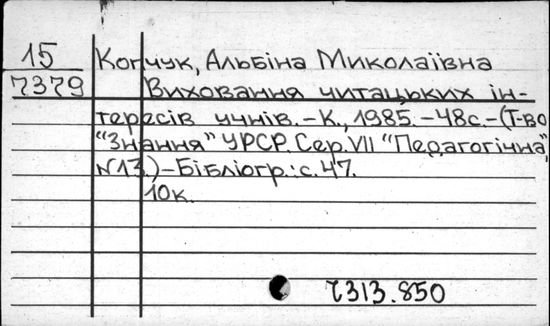 15 Копчук, Альбіна Миколаївна
7379 Виховання читацьких ін-
тересів учнів.-К., 1985.-48с.-(Т-во
"Знання" УРСР. Сер. VII "Педагогічна",
№13.)-Бібліогр.: с.47.
10к.
7313.850